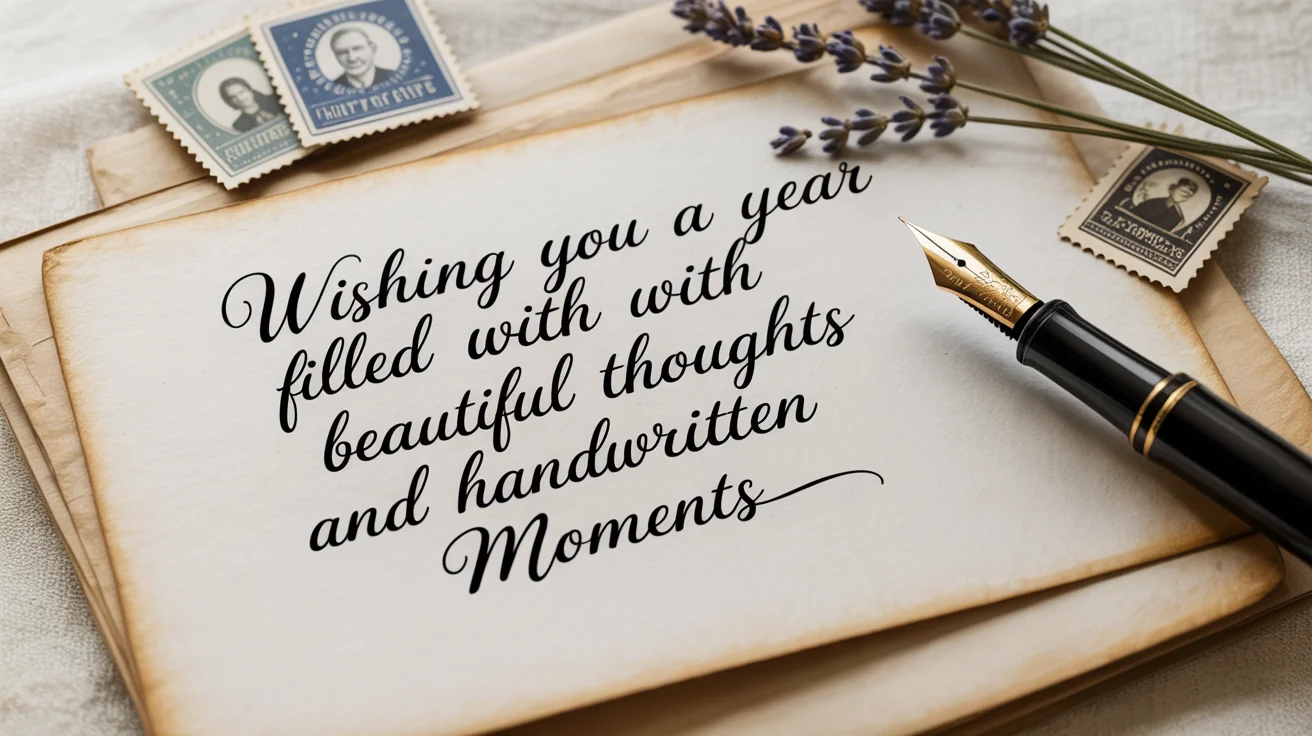 Wishing you a year
filled with with
beautiful thoughts
and handwritten
Moments